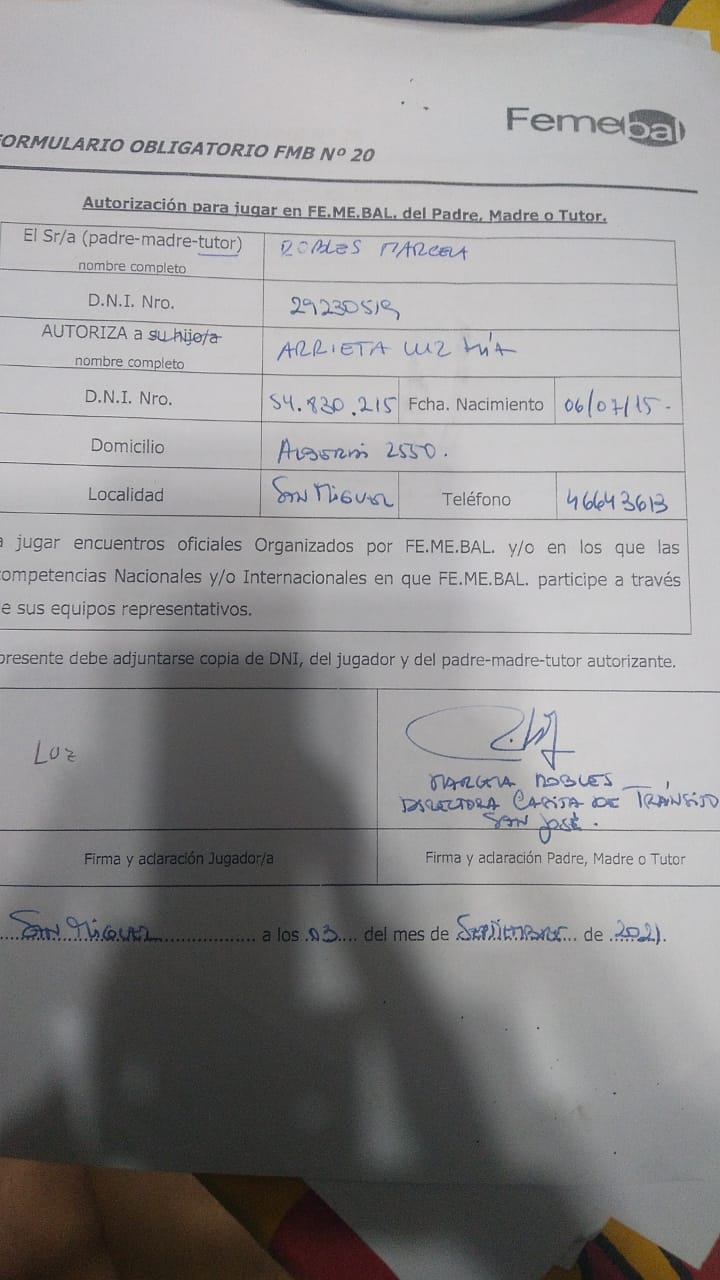 Femebal
FORMULARIO OBLIGATORIO FMB Nº 20
Autorización para jugar en FE.ME.BAL. del Padre, Madre o Tutor.
El Sr/a (padre-madre-tutor)
nombre completo
ROBLES MARCELA
D.N.I. Nro.
29230519
AUTORIZA a su hijo/a
nombre completo
ARRIETA LUZ MÍA
D.N.I. Nro. 54.830.215 Fcha. Nacimiento 06/07/15-
Domicilio 2550.
Localidad San Miguel Teléfono 46643613
a jugar encuentros oficiales Organizados por FE.ME.BAL. y/o en los que las
competencias Nacionales y/o Internacionales en que FE.ME.BAL. participe a través
e sus equipos representativos.
presente debe adjuntarse copia de DNI, del jugador y del padre-madre-tutor autorizante.
Luz
MARCELA ROBLES
DIRECTORA CASITA DE TRÁNSITO
SAN JOSÉ.
Firma y aclaración Jugador/a
Firma y aclaración Padre, Madre o Tutor
San Miguel a los 03 del mes de SEPTIEMBRE de 2021.